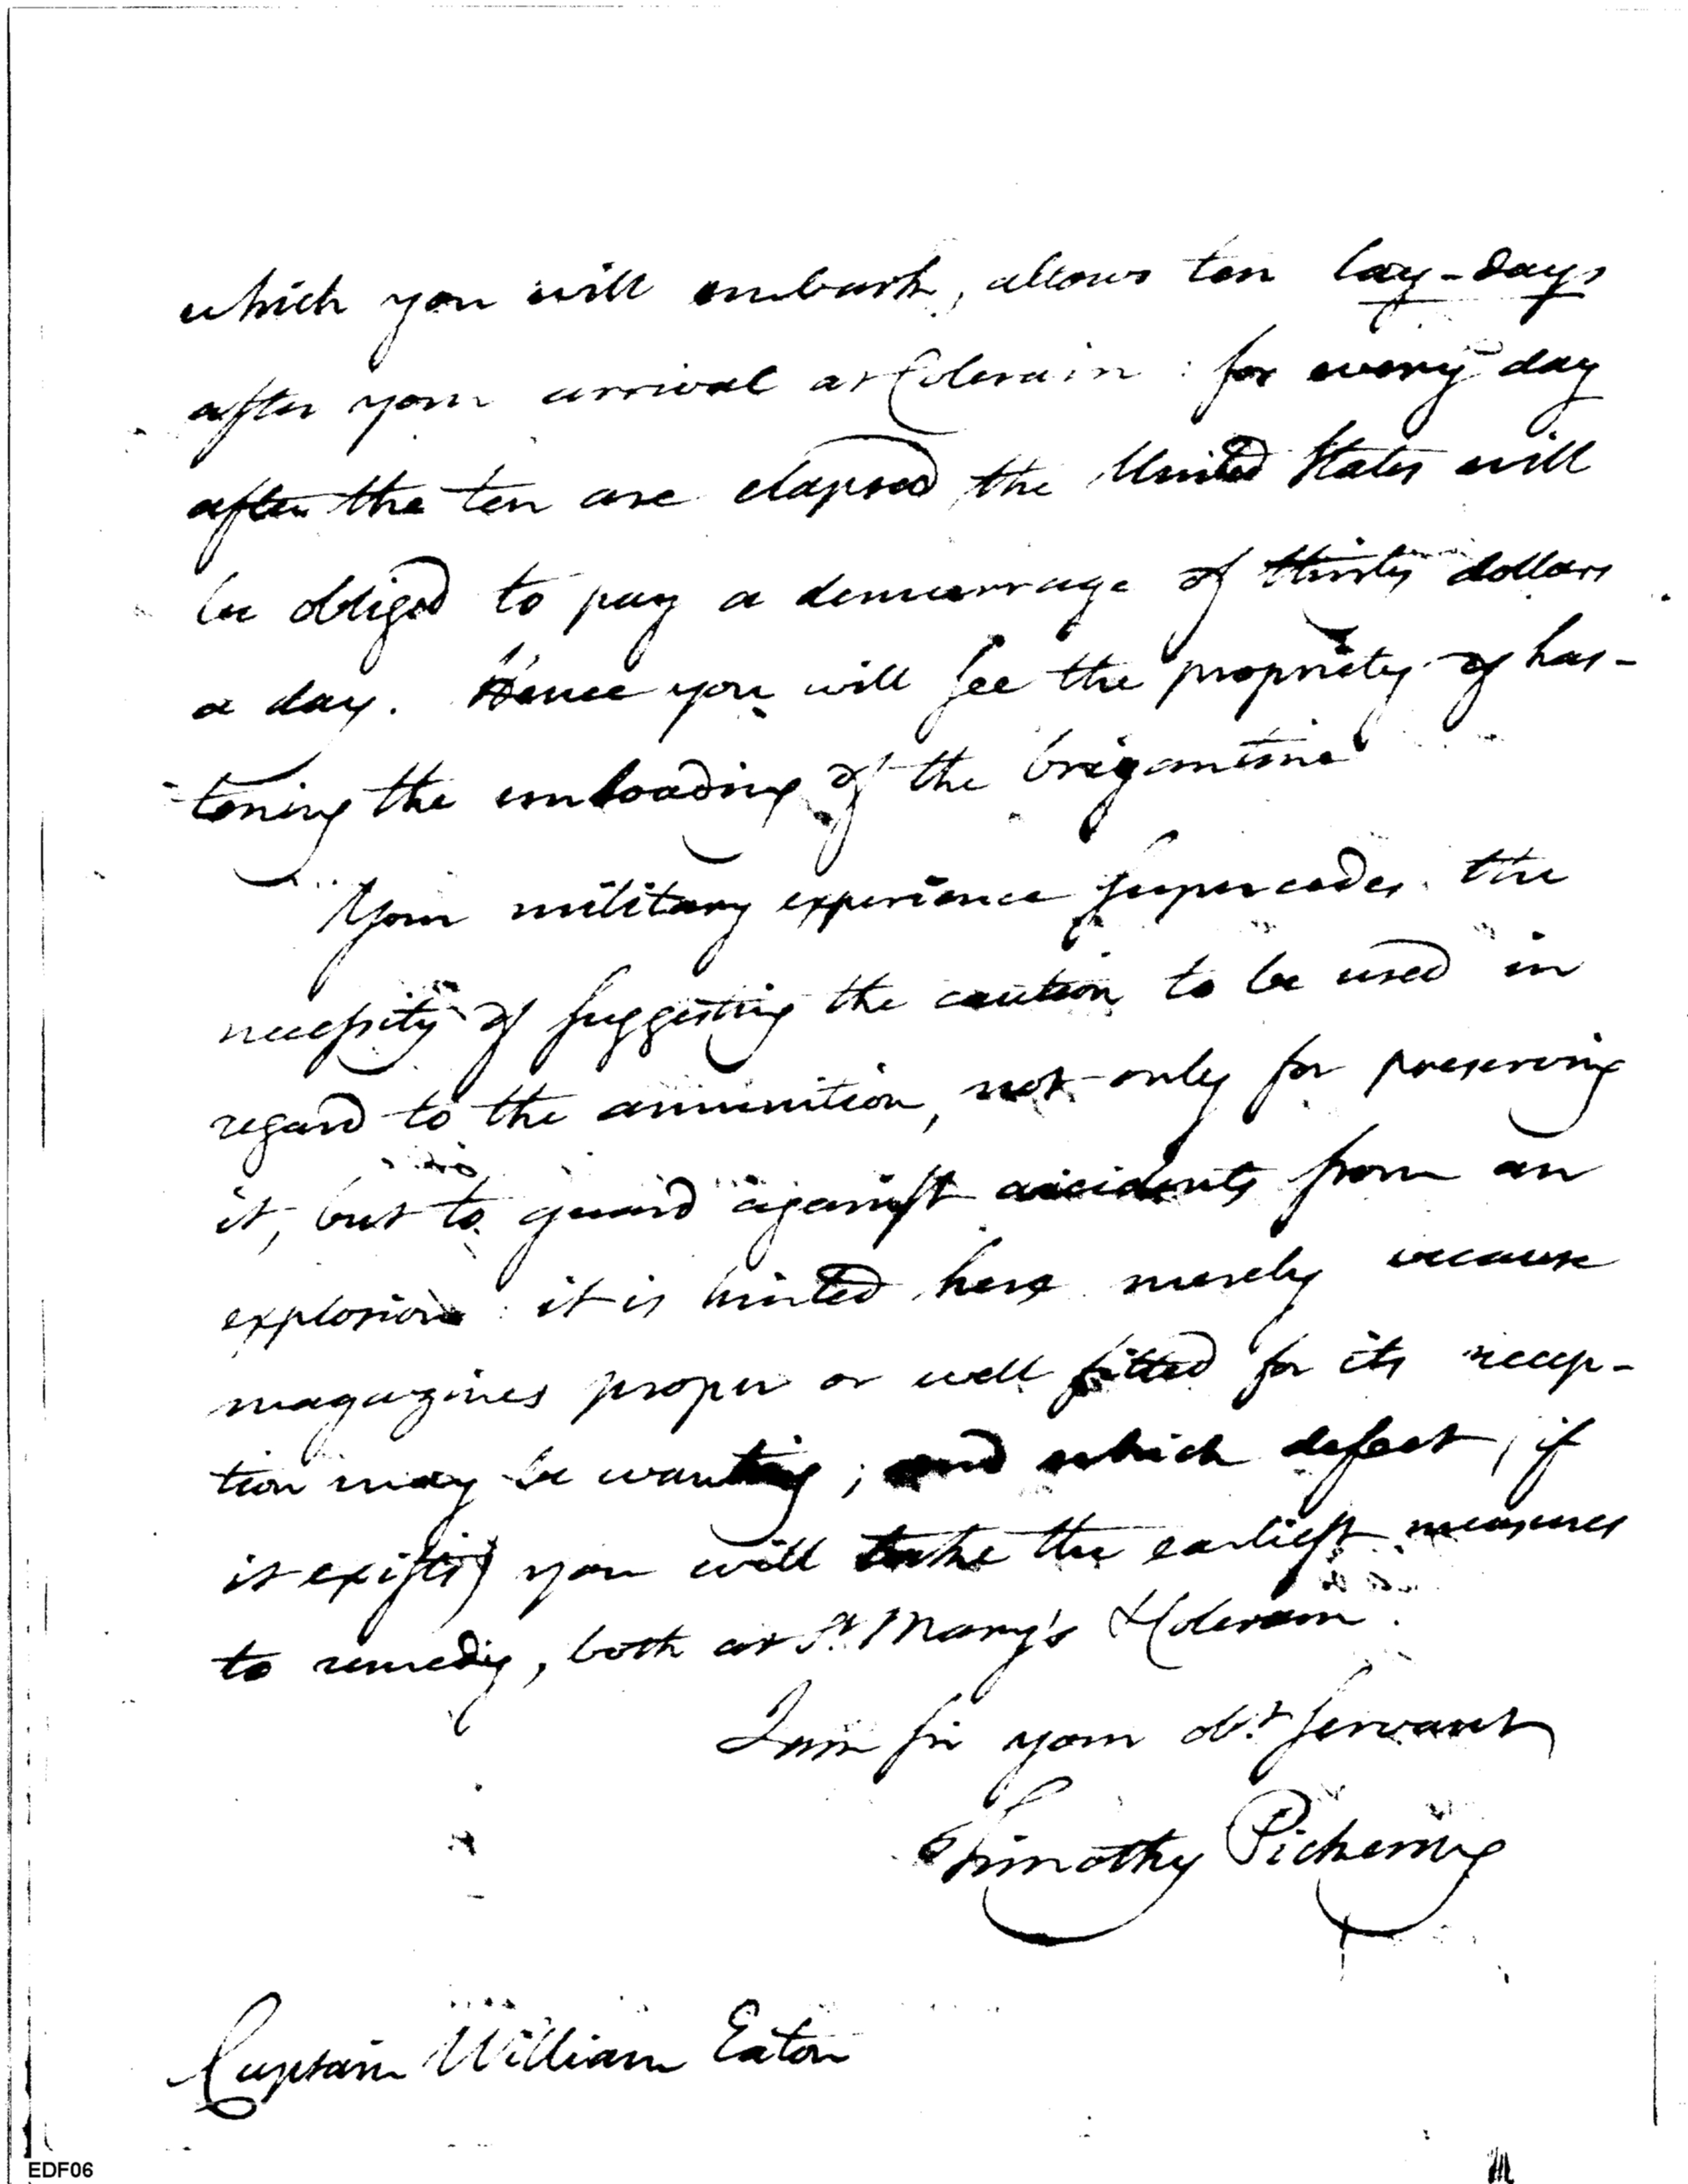 which you will embark, allows ten lay-days
after your arrival at Colerain: for every day
after the ten are elapsed the United States will
be obliged to pay a demurrage of thirty dollars
a day. Hence you will see the propriety of has-
tening the unloading of the brigantine
Your military experience supercedes the
necessity of suggesting the caution to be used in
regard to the ammunition, not only for preserving
it, but to guard against accidents from an
explosion: it is hinted here merely because
magazines proper or well fitted for its recep-
tion may be wanting; and which defect, if
it exists, you will take the earliest measures
to remedy, both at St Mary's & Colerain.
I am sir your obt servant
Timothy Pickering
Captain William Eaton
EDF06